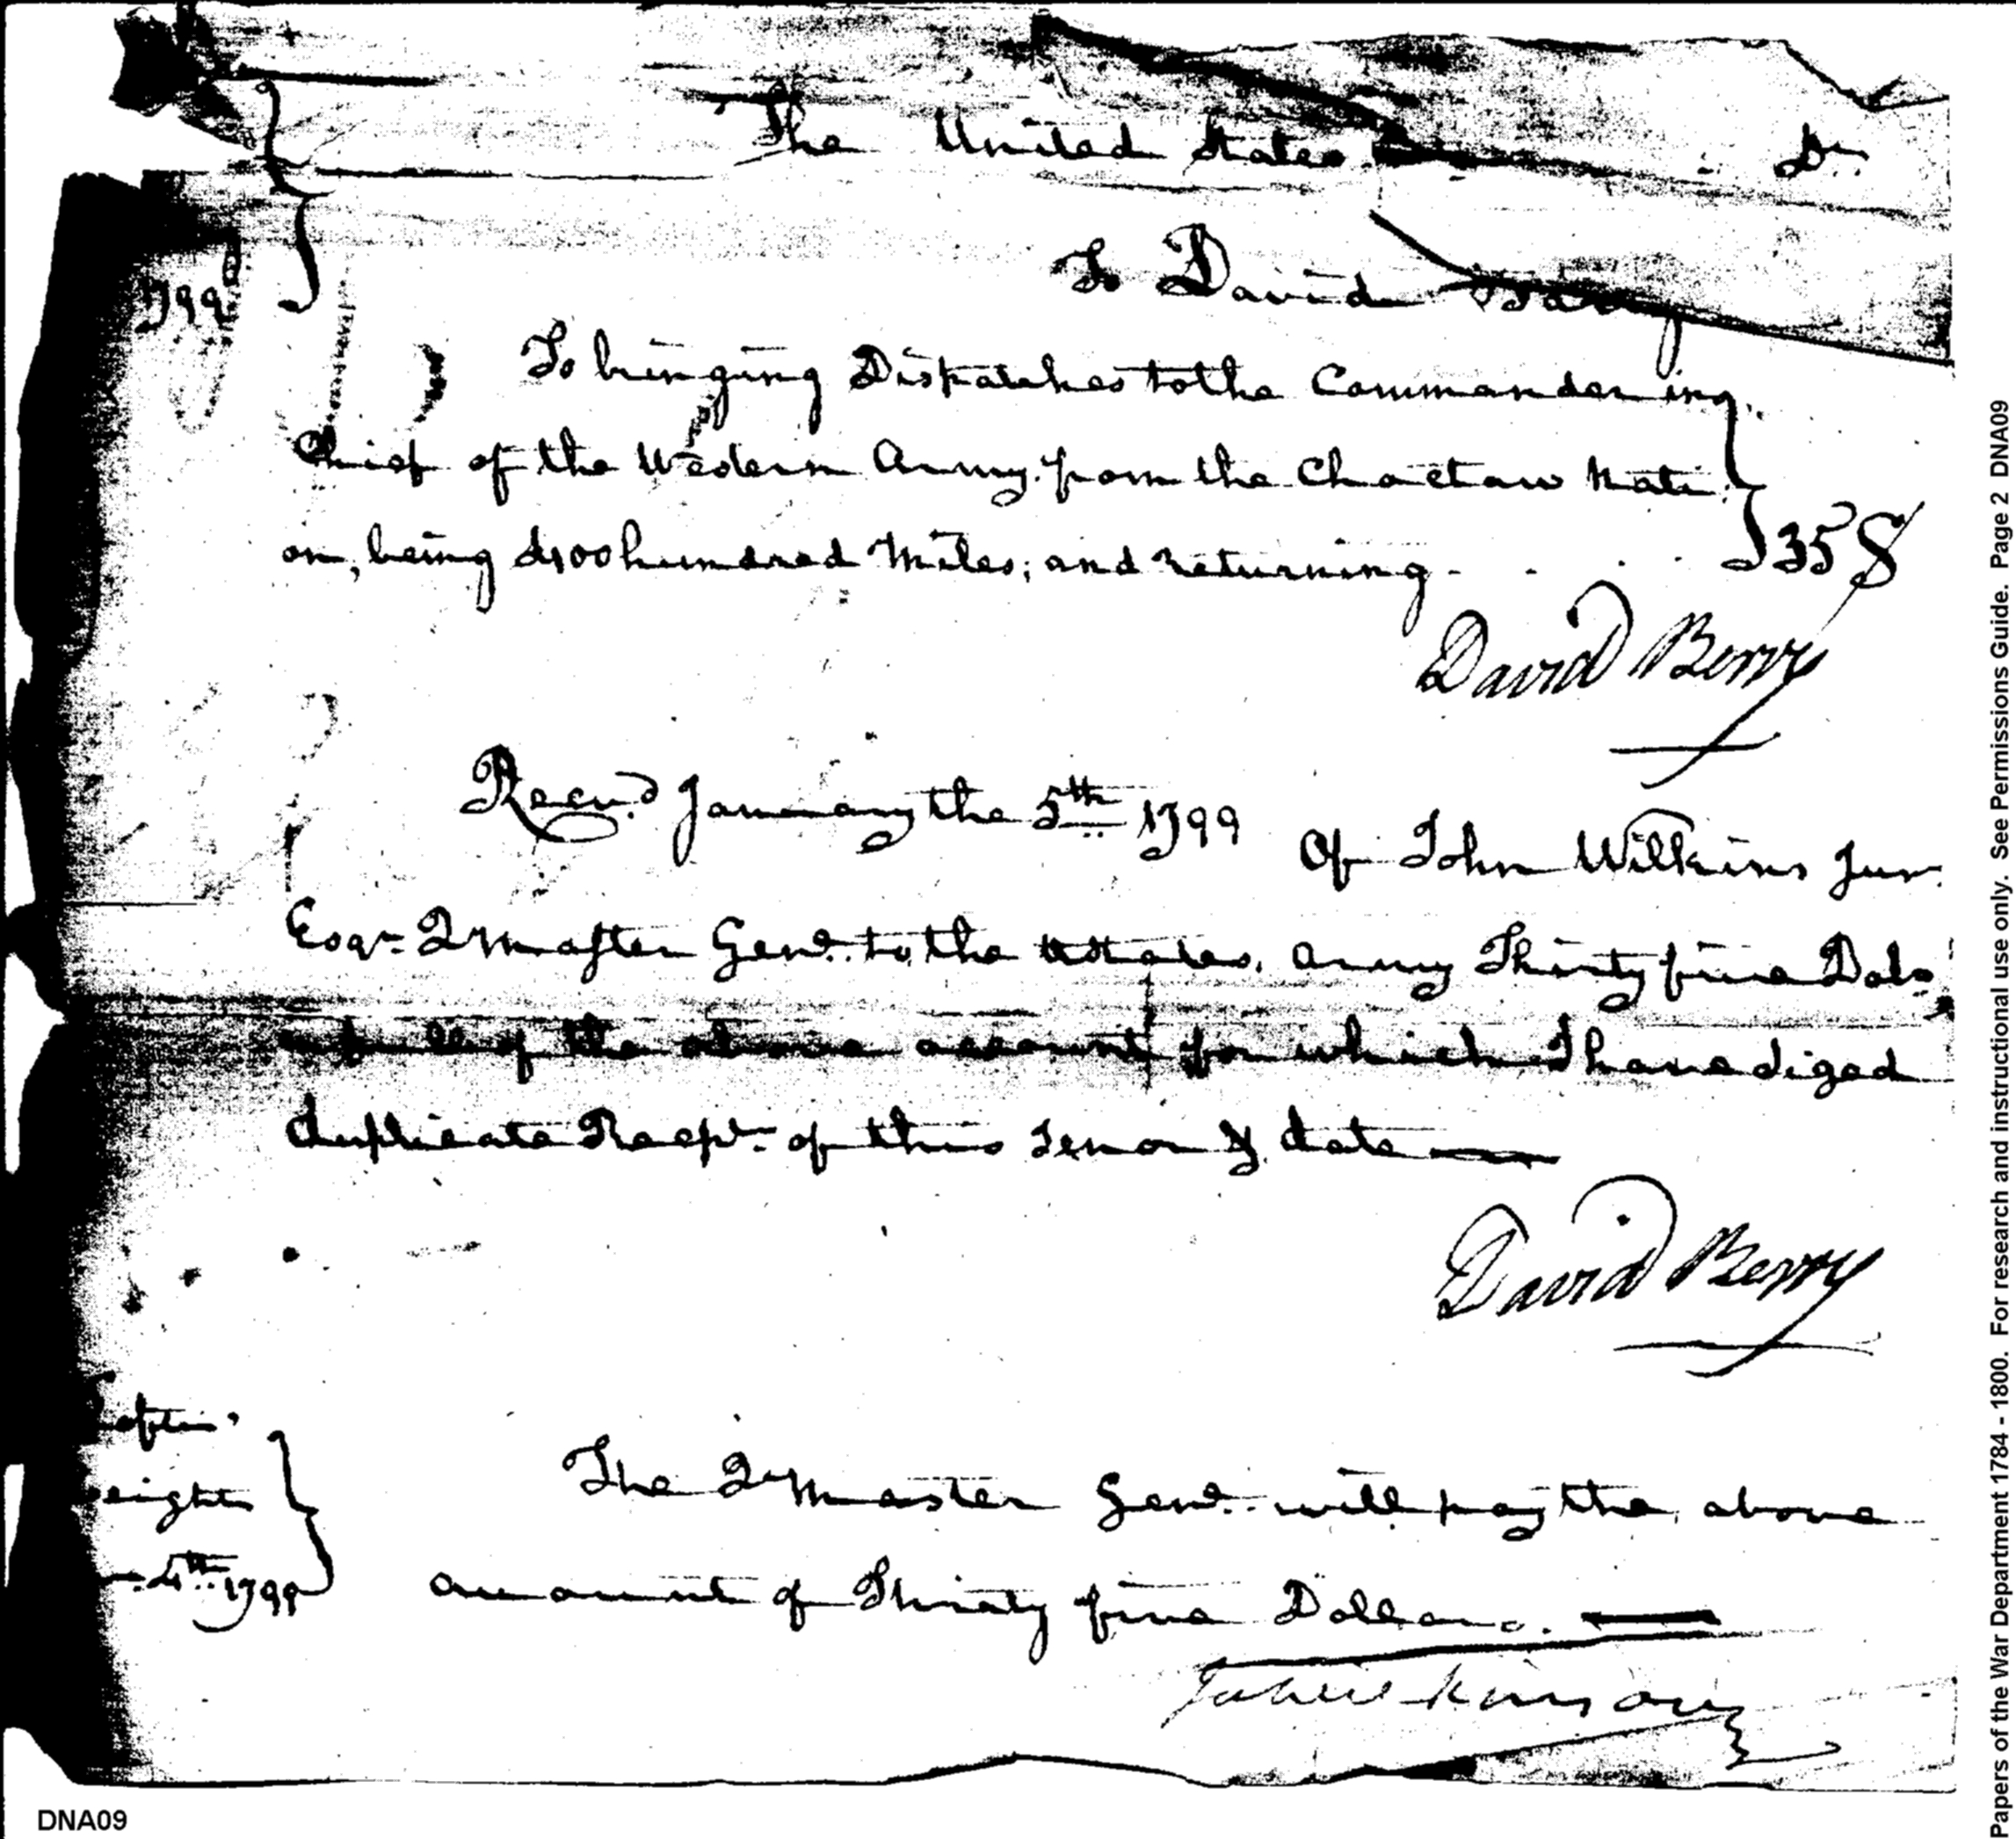 The United States Dr
1799
To David Barry
To bringing Dispatches to the Commander ing
Chief of the Western Army from the Choctaw Nati
on, being 400 hundred Miles, and returning - . . . 35 $
David Berry
Recvd January the 5th 1799 Of John Wilkins Junr
Esqr. Q Master Genl. to the UStates, Army Thirty five Dols
full of the above account for which I have siged
duplicate Recpt. of this tenor & date
David Berry
The Q Master Genl. will pay the above
eights
4th 1799
amount of Thirty five Dollars.
Ja Wilkinson
Papers of the War Department 1784 - 1800. For research and instructional use only. See Permissions Guide. Page 2 DNA09
DNA09